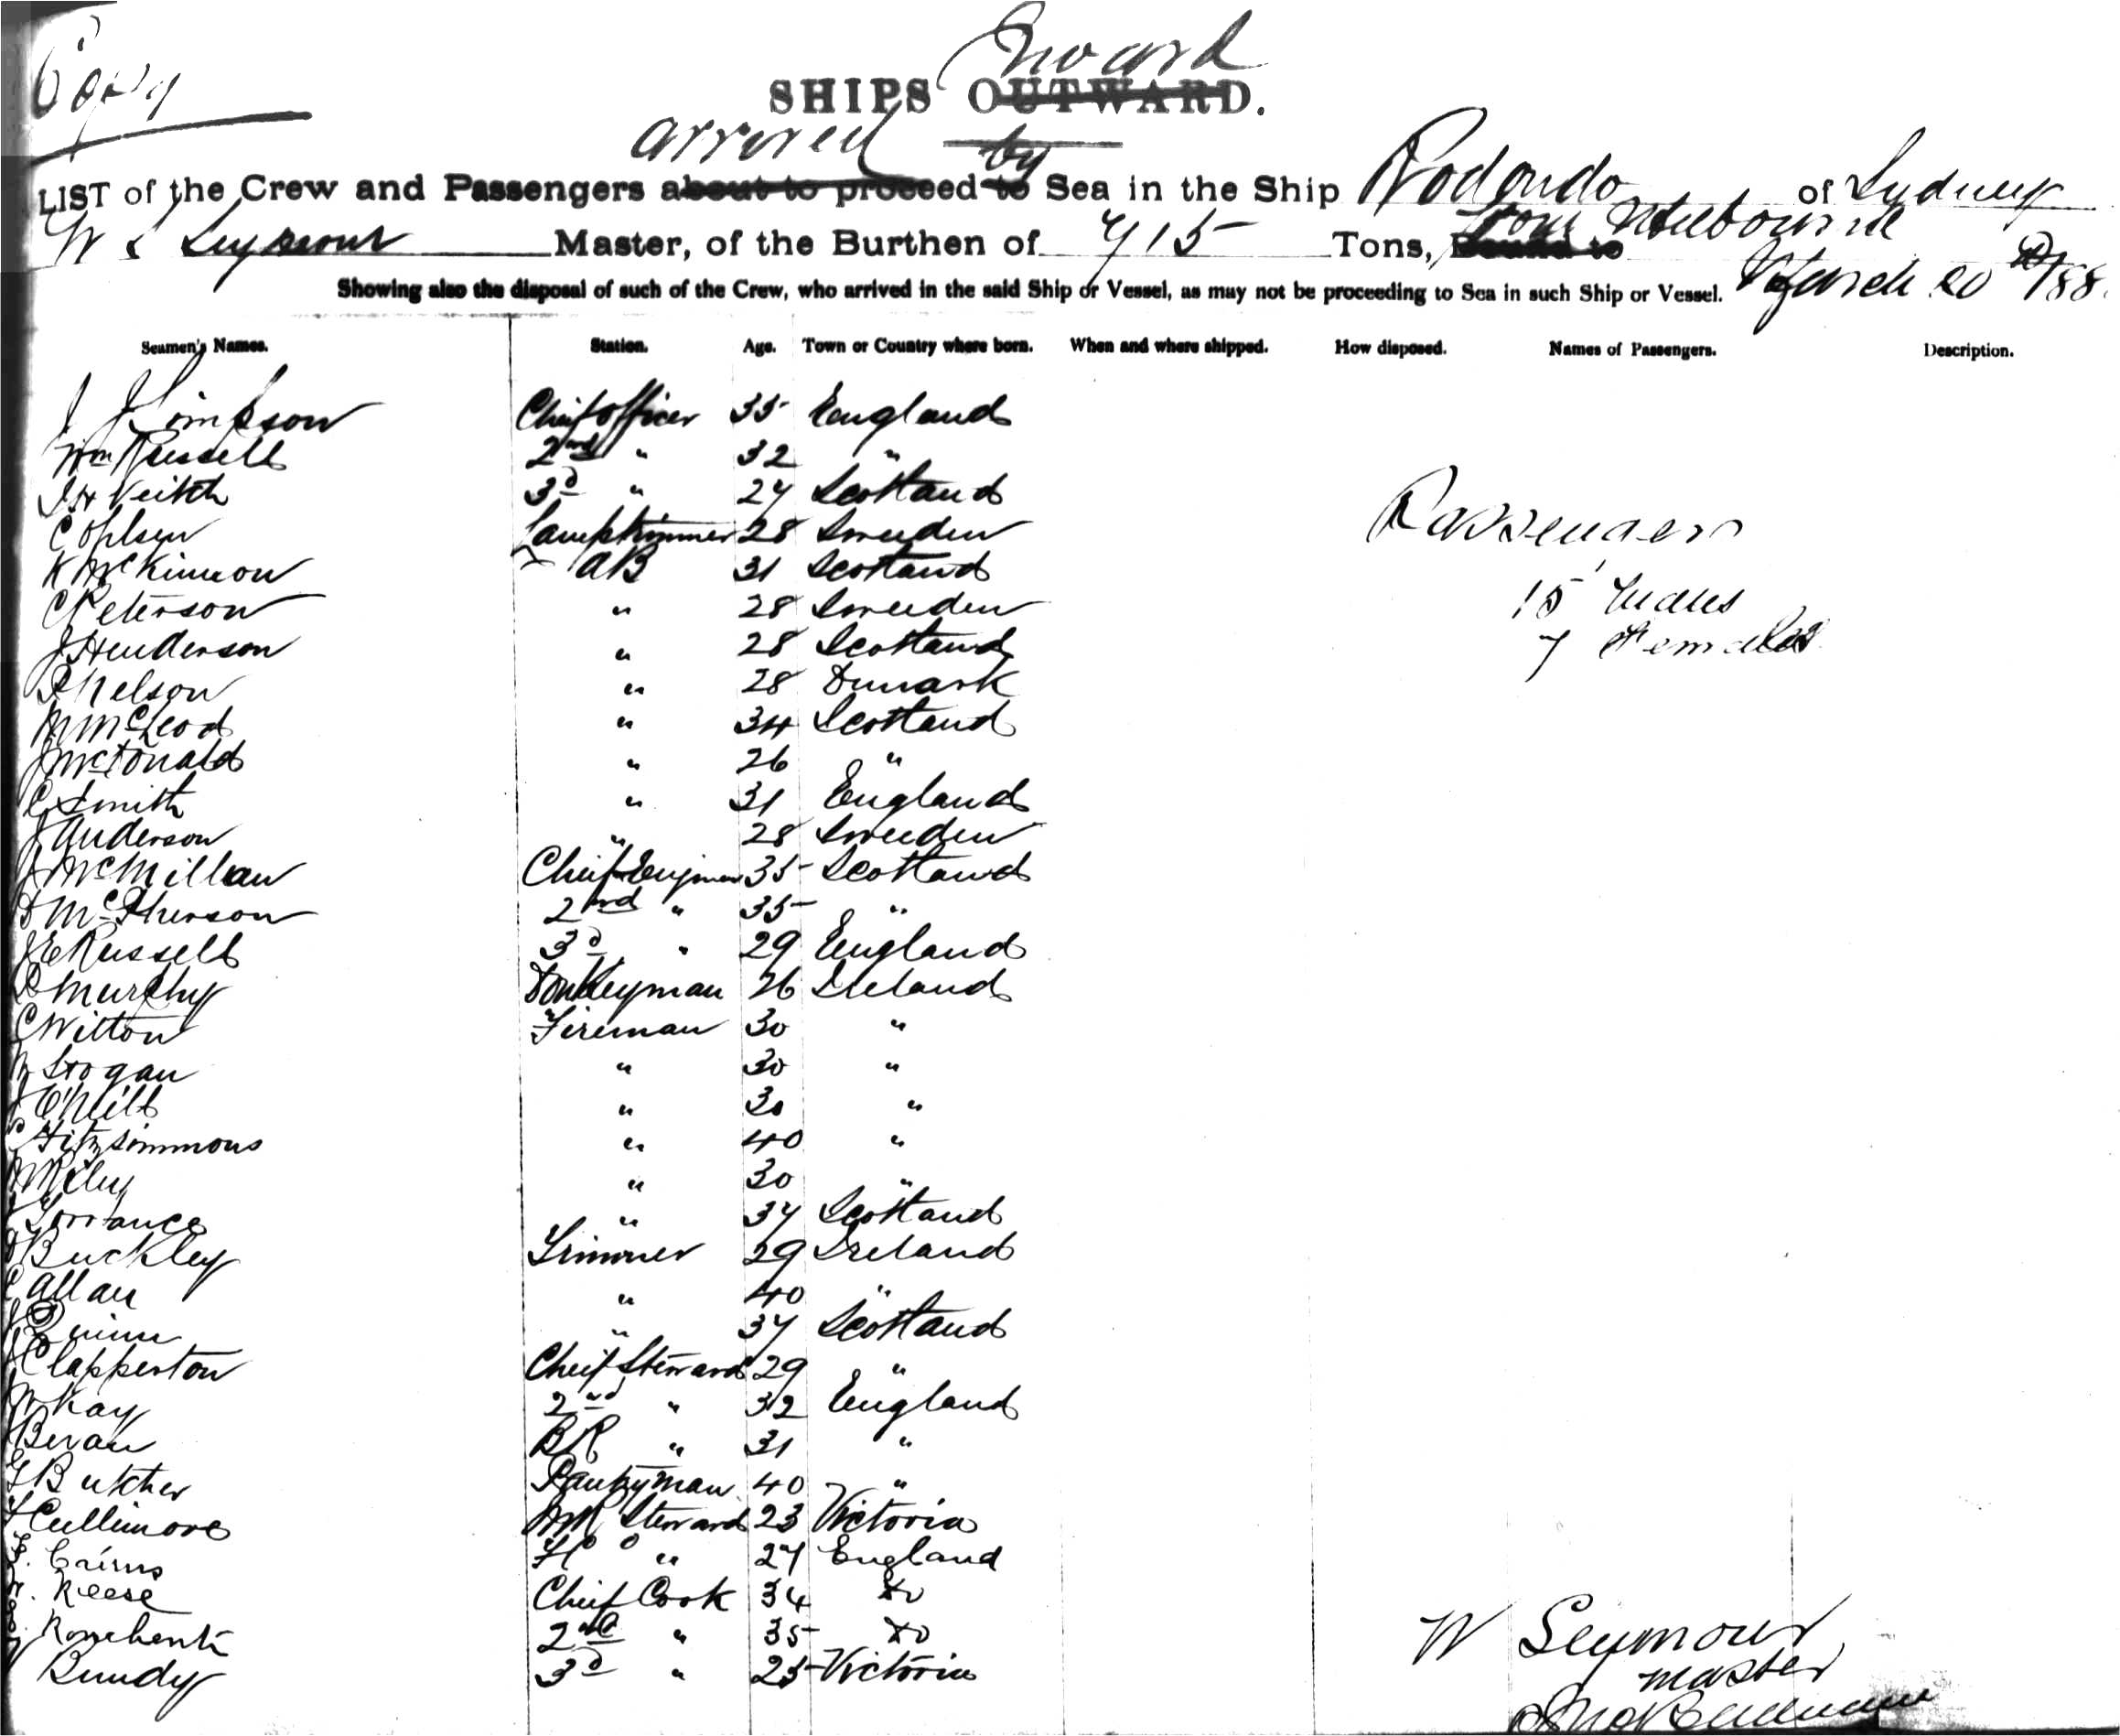 Copy
Inward
SHIPS OUTWARD.
arrived by
LIST of the Crew and Passengers about to proceed to Sea in the Ship Rodondo of Sydney
W S Seymour Master, of the Burthen of 715 Tons, Bound to from Melbourne
Showing also the disposal of such of the Crew, who arrived in the said Ship or Vessel, as may not be proceeding to Sea in such Ship or Vessel. March 20 /88.
Seamen's Names. Station. Age. Town or Country where born. When and where shipped. How disposed. Names of Passengers. Description.
J Simpson Chief Officer 35 England
Wm Russell 2nd " 32 "
J H Veitch 3d " 27 Scotland
C Ohlsen Lamptrimmer 28 Sweeden
K McKinnon AB 31 Scotland
C Peterson " 28 Sweeden
J Henderson " 28 Scotland
P Nelson " 28 Denmark
M McLeod " 34 Scotland
J McDonald " 26 "
C Smith " 31 England
J Anderson " 28 Sweeden
J McMillan Cheif Enginer 35 Scotland
D McPherson 2nd " 35 "
J E Russell 3d " 29 England
P Murphy Donkeyman 26 Ireland
C Wilton Fireman 30 "
Grogan " 30 "
J O'Neill " 30 "
Fitzsimmons " 40 "
M Riley " 30 "
Torrance " 37 Scotland
D Buckley Trimmer 29 Ireland
C Allan " 40 "
J Quinn " 37 Scotland
J Clapperton Cheif Steward 29 "
W Kay 2nd " 32 England
Bevan BR " 31 "
G Butcher Pantryman 40 "
F Cullimore Steward 23 Victoria
F. Cairns " 27 England
W. Reese Chief Cook 34 Do
2nd " 35 Do
Bundy 3d " 25 Victoria
Passengers
15 Males
7 Females
W Seymour
Master